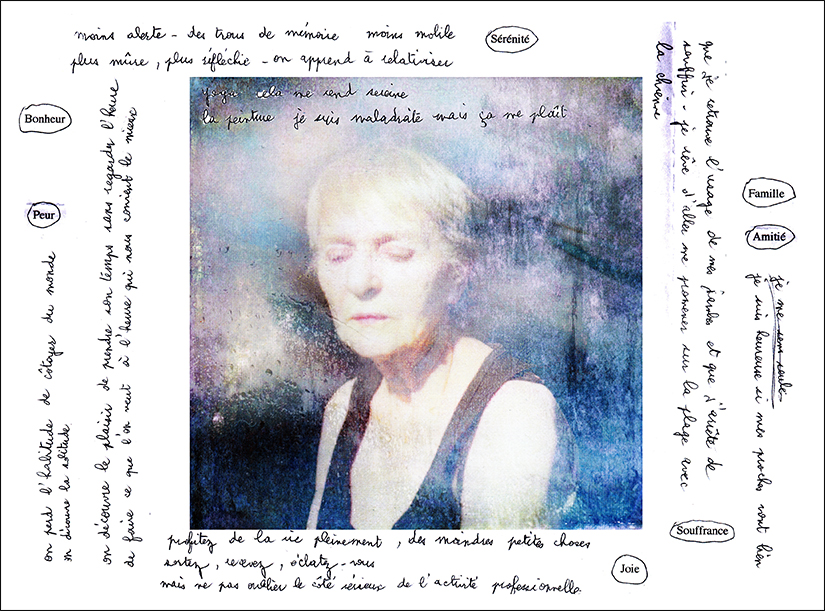 moins alerte - des trous de mémoire moins mobile
plus mûre, plus réfléchie - on apprend à relativiser
Sérénité
yoga cela me rend sereine
la peinture je suis maladroite mais ça me plaît
Bonheur
Peur
on perd l'habitude de côtoyer du monde
on découvre la solitude
on découvre le plaisir de prendre son temps sans regarder l'heure
de faire ce que l'on veut à l'heure qui nous convient le mieux
que je retrouve l'usage de mes jambes et que j'arrête de
souffrir - je rêve d'aller me promener sur la plage avec
la chienne
Famille
Amitié
je me sens seule
je suis heureuse si mes proches vont bien
Souffrance
profitez de la vie pleinement, des moindres petites choses
sortez, revenez, éclatez-vous
mais ne pas oublier le côté sérieux de l'activité professionnelle.
Joie